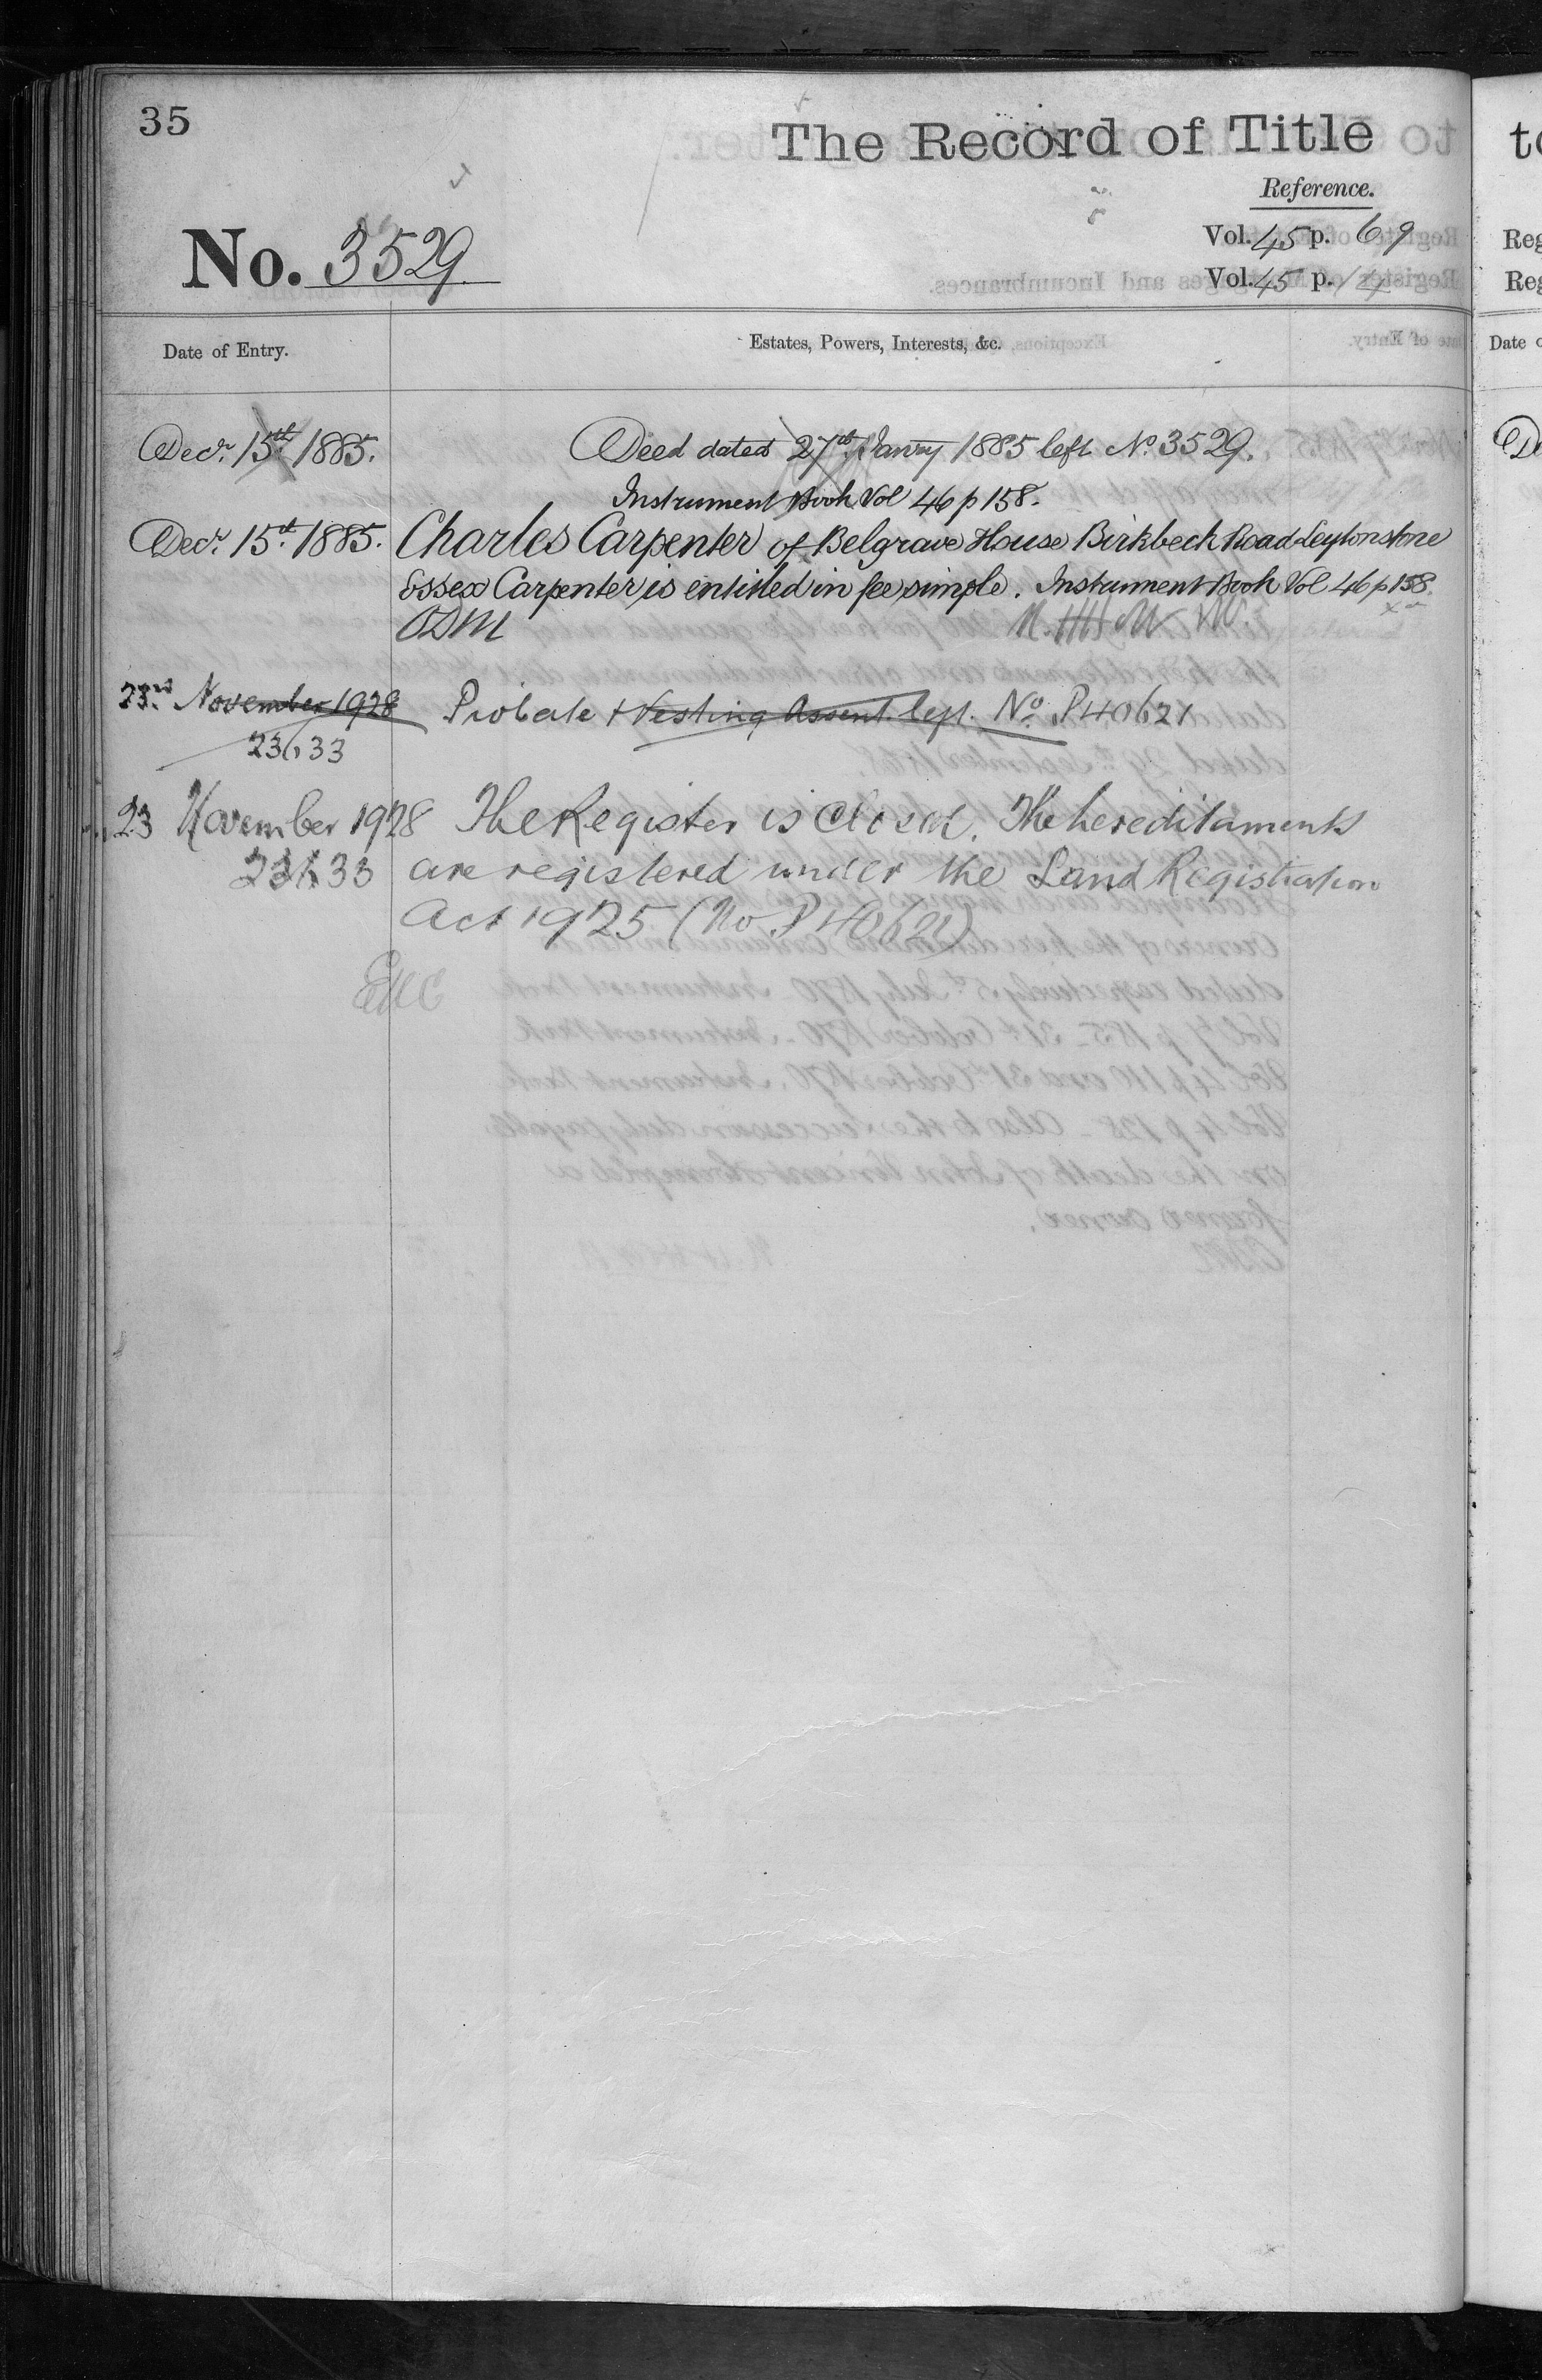 35
The Record of Title
Reference.
No. 3529
Vol. 45 p. 69
Vol. 45 p. 14
Date of Entry.
Estates, Powers, Interests, &c.
Decr. 15th 1885.
Deed dated 27th Janry 1885 left No. 3529.
Instrument Book Vol 46 p 158.
Decr. 15th 1885.
Charles Carpenter of Belgrave House Birkbeck Road Leytonstone
Essex Carpenter is entitled in fee simple. Instrument Book Vol 46 p 158.
23rd November 1928
Probate & Vesting Assent left. No. P40621
23633
23 November 1928
The Register is closed. The hereditaments
23633
are registered under the Land Registration
Act 1925 (No. P40621)
to
Reg
Reg
Date
De